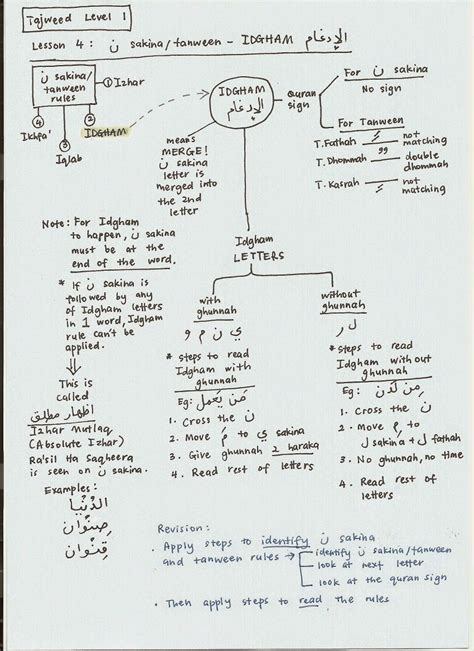 Tajweed Level 1
Lesson 4 : ن sakina/tanween - IDGHAM الإدغام
ن sakina/
tanween
rules
① Izhar
④
Ikhpa'
③
Iqlab
②
IDGHAM
IDGHAM
الإدغام
means
MERGE!
ن sakina
letter is
merged into
the 2nd
letter
Quran
sign
For ن sakina
No sign
For Tanween
T.Fathah not
matching
T.Dhommah double
dhommah
T.Kasrah not
matching
Note: For Idgham
to happen, ن sakina
must be at the
end of the word.
* If ن sakina is
followed by any
of Idgham letters
in 1 word, Idgham
rule can't be
applied.
This is
called
اظهار مطلق
Izhar Mutlaq
(Absolute Izhar)
Ra'sil Ha Sagheera
is seen on ن sakina.
Examples:
الدُّنْيَا
صِنْوَان
قِنْوَان
Idgham
LETTERS
with
ghunnah
ي ن م و
* steps to read
Idgham with
ghunnah
Eg: مَن يَعْمَل
1. Cross the ن
2. Move مَ to ي sakina
3. Give ghunnah 2 haraka
4. Read rest of letters
without
ghunnah
ل ر
* steps to read
Idgham with out
ghunnah
Eg: مِن لَّدُنْ
1. Cross the ن
2. Move مِ to
ل sakina & ل fathah
3. No ghunnah, no time
4. Read rest of
letters
Revision:
• Apply steps to identify ن sakina
and tanween rules → identify ن sakina/tanween
look at next
letter
look at the quran sign
• Then apply steps to read the rules